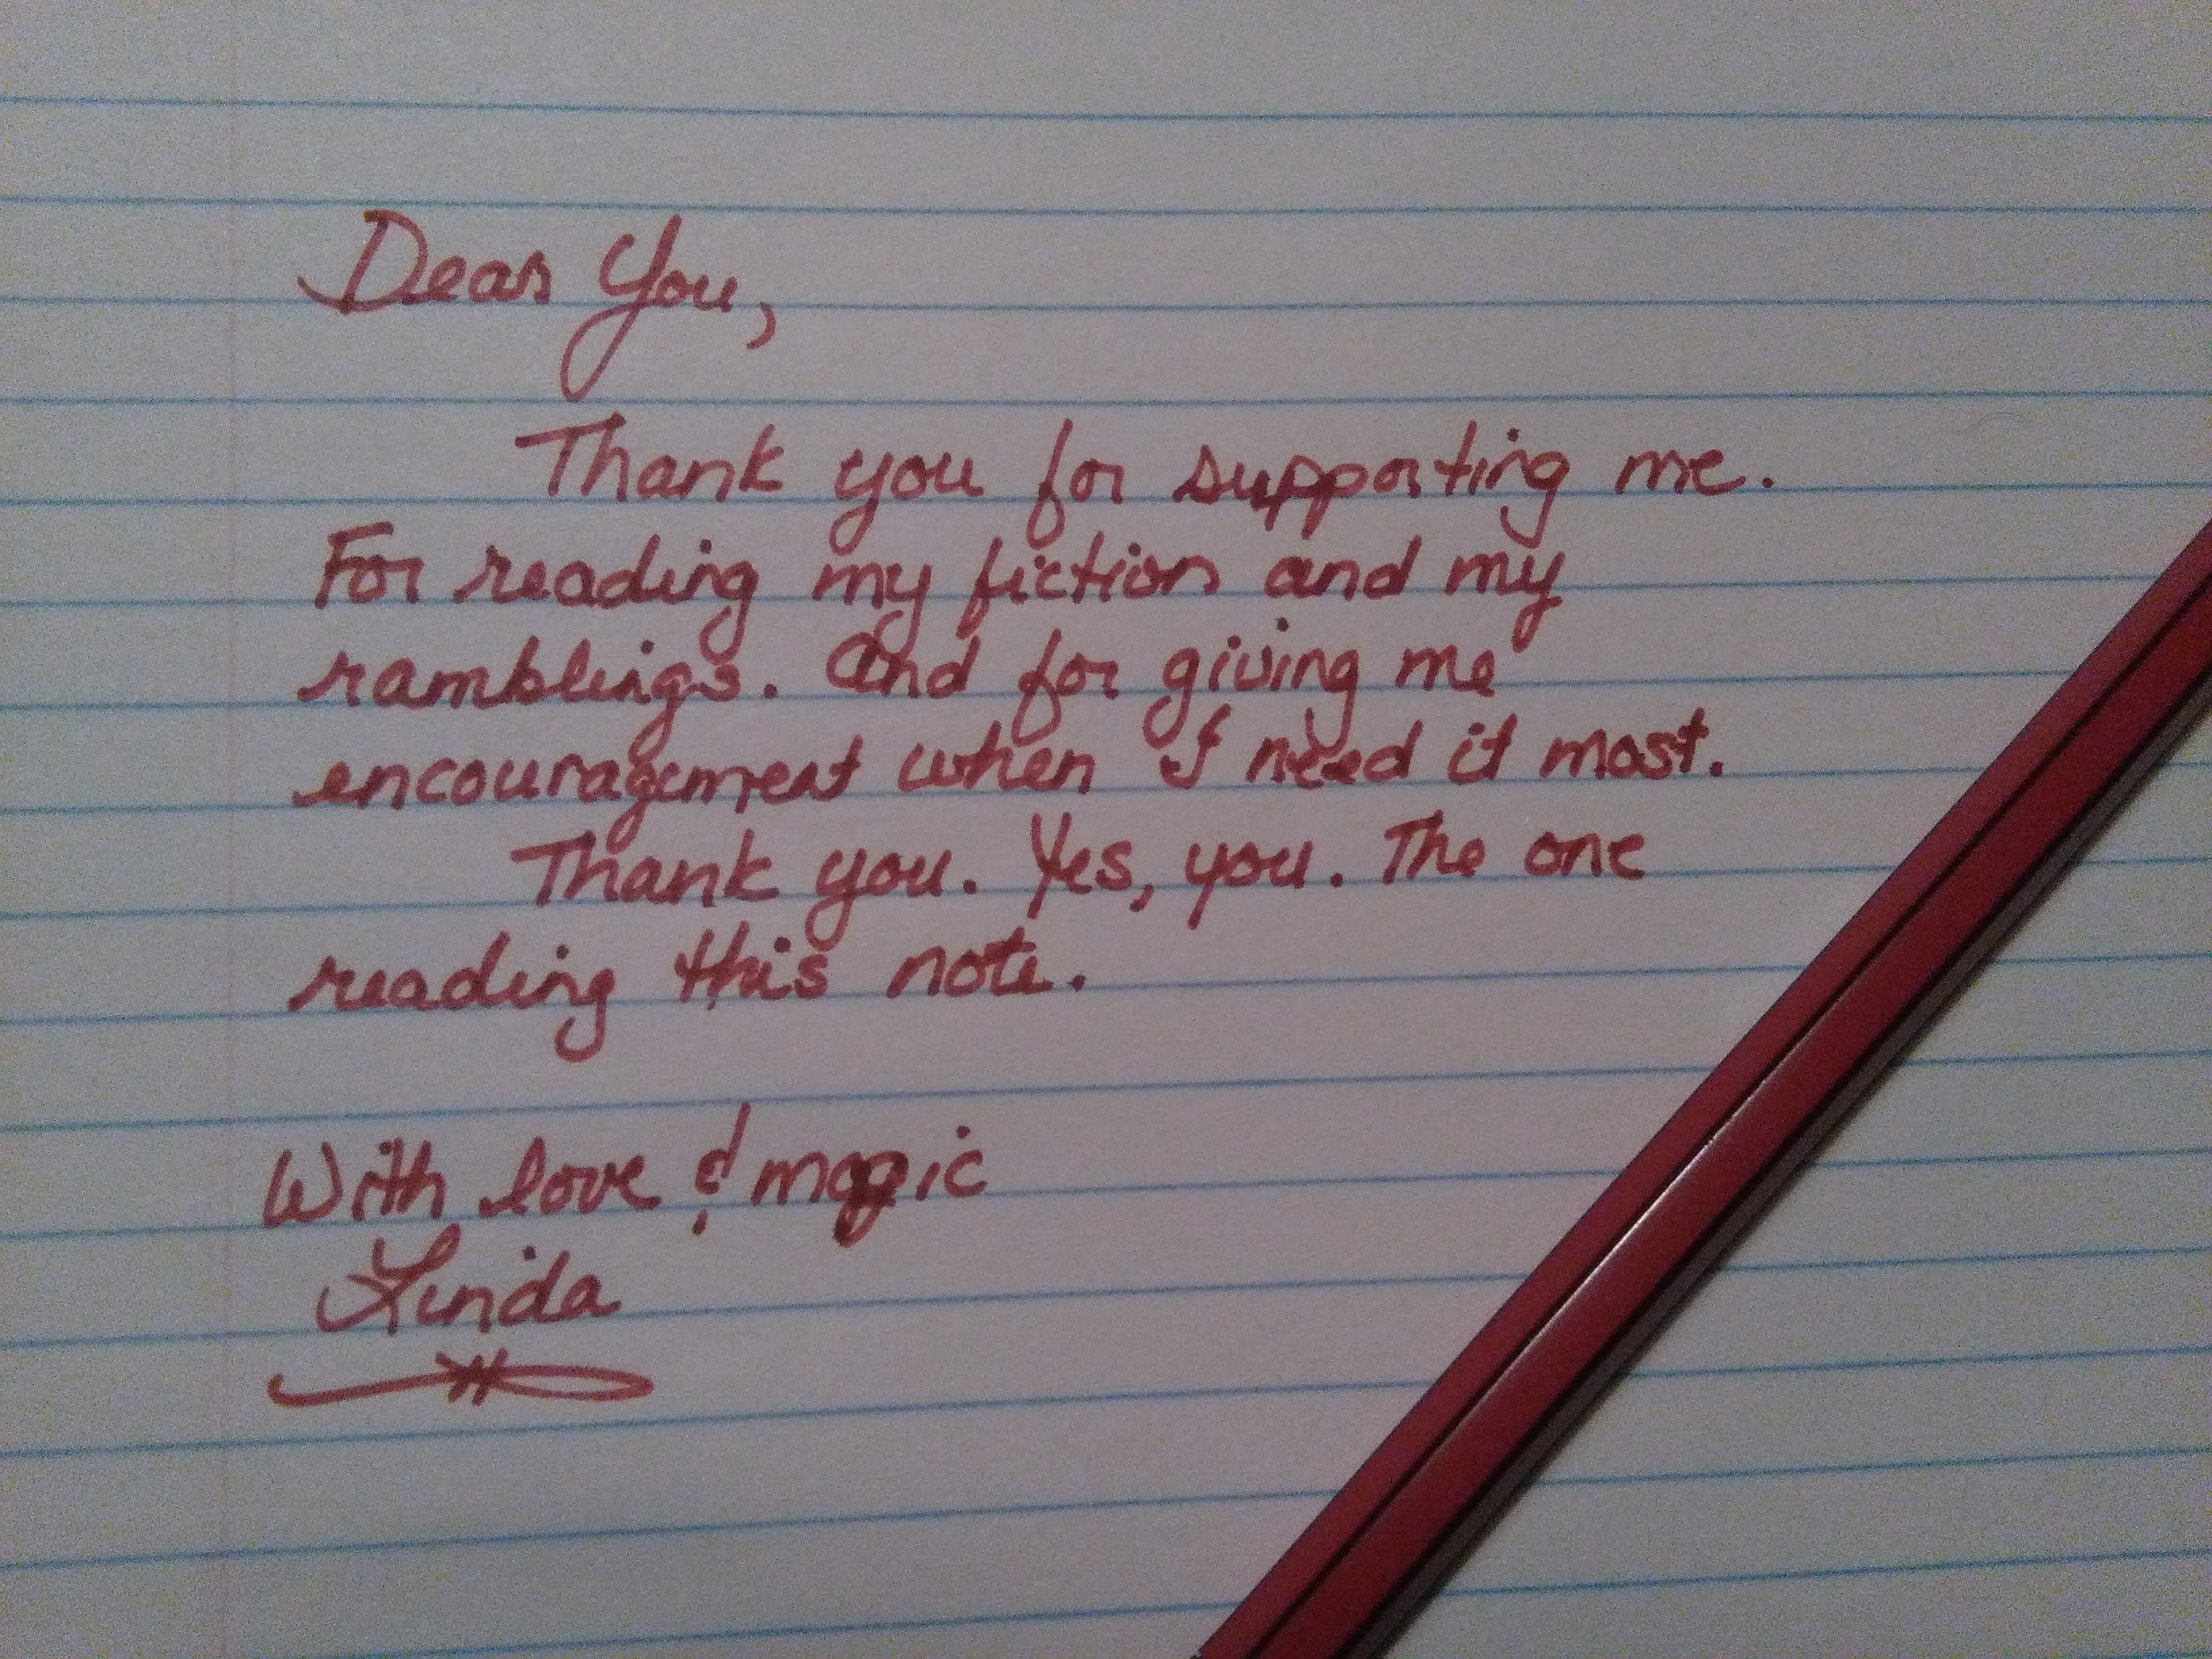 Dear You,
Thank you for supporting me.
For reading my fiction and my
ramblings. And for giving me
encouragement when I need it most.
Thank you. Yes, you. The one
reading this note.
With love & magic
Linda